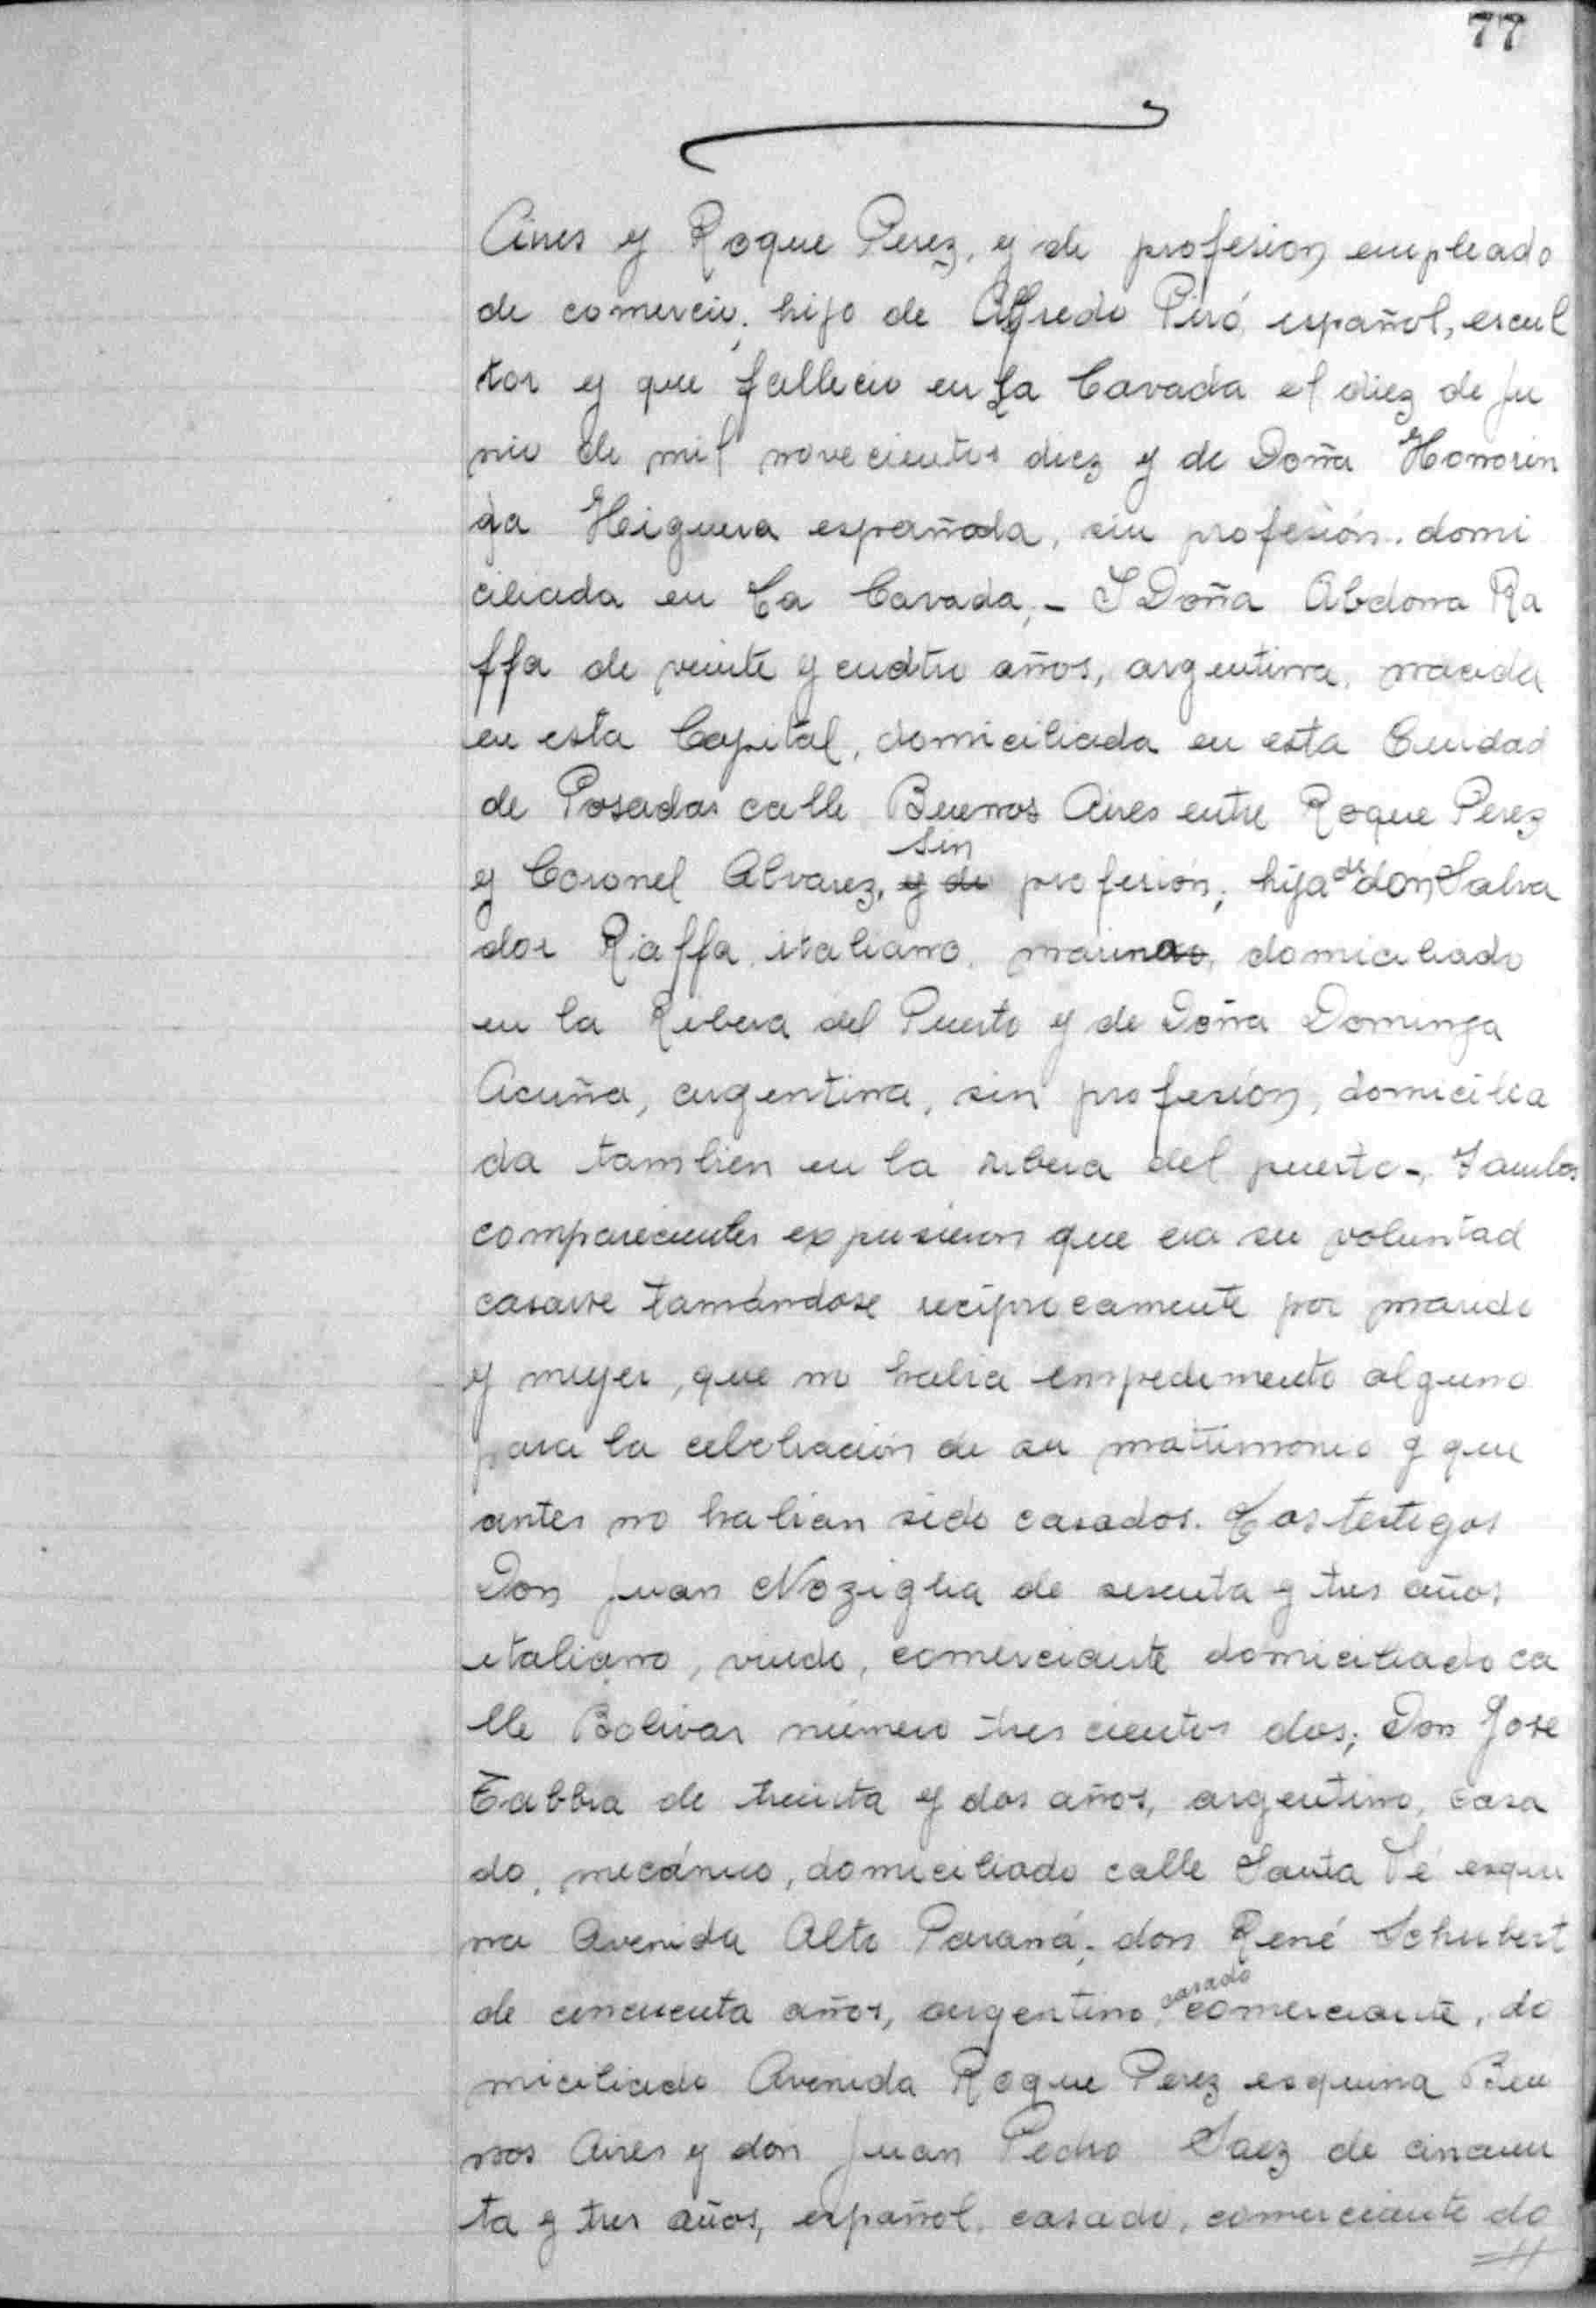 77
Aires y Roque Perez, y de profesion empleado
de comercio; hijo de Alfredo Piró español, escul
tor y que fallecio en La Cavada el diez de Ju
nio de mil novecientos diez y de Doña Honorin
da Higuera española, sin profesión, domi
ciliada en La Cavada,- Y Doña Abdona Ra
ffa de veinte y cuatro años, argentina, nacida
en esta Capital, domiciliada en esta Ciudad
de Posadas calle Buenos Aires entre Roque Perez
sin
y Coronel Alvarez, y de profesión; hija de don Salva
dor Raffa, italiano, marino, domiciliado
en la Ribera del Puerto y de Doña Dominga
Acuña, argentina, sin profesión, domicilia
da tambien en la ribera del puerto-, Y ambos
comparecientes expusieron que era su voluntad
casarse tomándose reciprocamente por marido
y mujer, que no habia empedimento alguno
para la celebración de su matrimonio y que
antes no habian sido casados. Los testigos
Don Juan Noziglia de sesenta y tres años
italiano, viudo, comerciante domiciliado ca
lle Bolivar número tres cientos dos; Don Jose
Labbra de treinta y dos años, argentino, casa
do, mecánico, domiciliado calle Santa Fé esqui
na Avenida Alto Paraná; don René Schubert
casado
de cincuenta años, argentino, comerciante, do
miciliado Avenida Roque Perez esquina Bue
nos Aires y don Juan Pedro Saez de cincuen
ta y tres años, español, casado, comerciante do